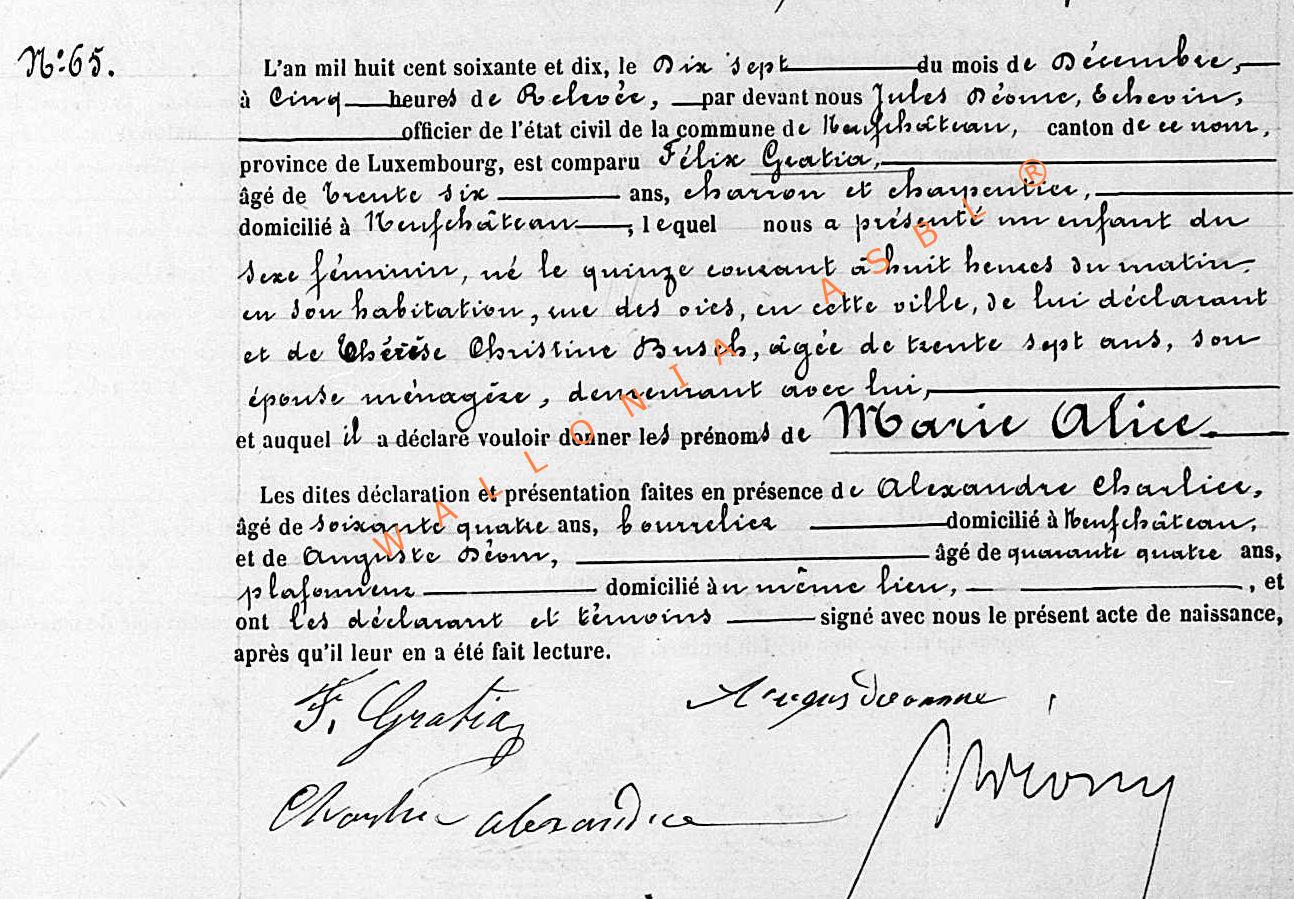 N°: 65.
L'an mil huit cent soixante et dix, le Dix sept du mois de Décembre,
à Cinq heures de Relevée, par devant nous Jules Déome, Echevin,
officier de l'état civil de la commune de Neufchâteau, canton de ce nom,
province de Luxembourg, est comparu Félix Gratia,
âgé de trente six ans, charron et charpentier,
domicilié à Neufchâteau, lequel nous a présenté un enfant du
sexe féminin, né le quinze courant à huit heures du matin,
en son habitation, rue des oies, en cette ville, de lui déclarant
et de Thérèse Christine Busch, âgée de trente sept ans, son
épouse ménagère, demeurant avec lui,
et auquel il a déclaré vouloir donner les prénoms de Marie Alice.
Les dites déclaration et présentation faites en présence de Alexandre Charlier,
âgé de soixante quatre ans, bourrelier domicilié à Neufchâteau,
et de Auguste Déom, âgé de quarante quatre ans,
plafonneur domicilié à u même lieu, , et
ont les déclarant et témoins signé avec nous le présent acte de naissance,
après qu'il leur en a été fait lecture.
F. Gratia
Charlier alexandre
WALLONIA ASBL ®